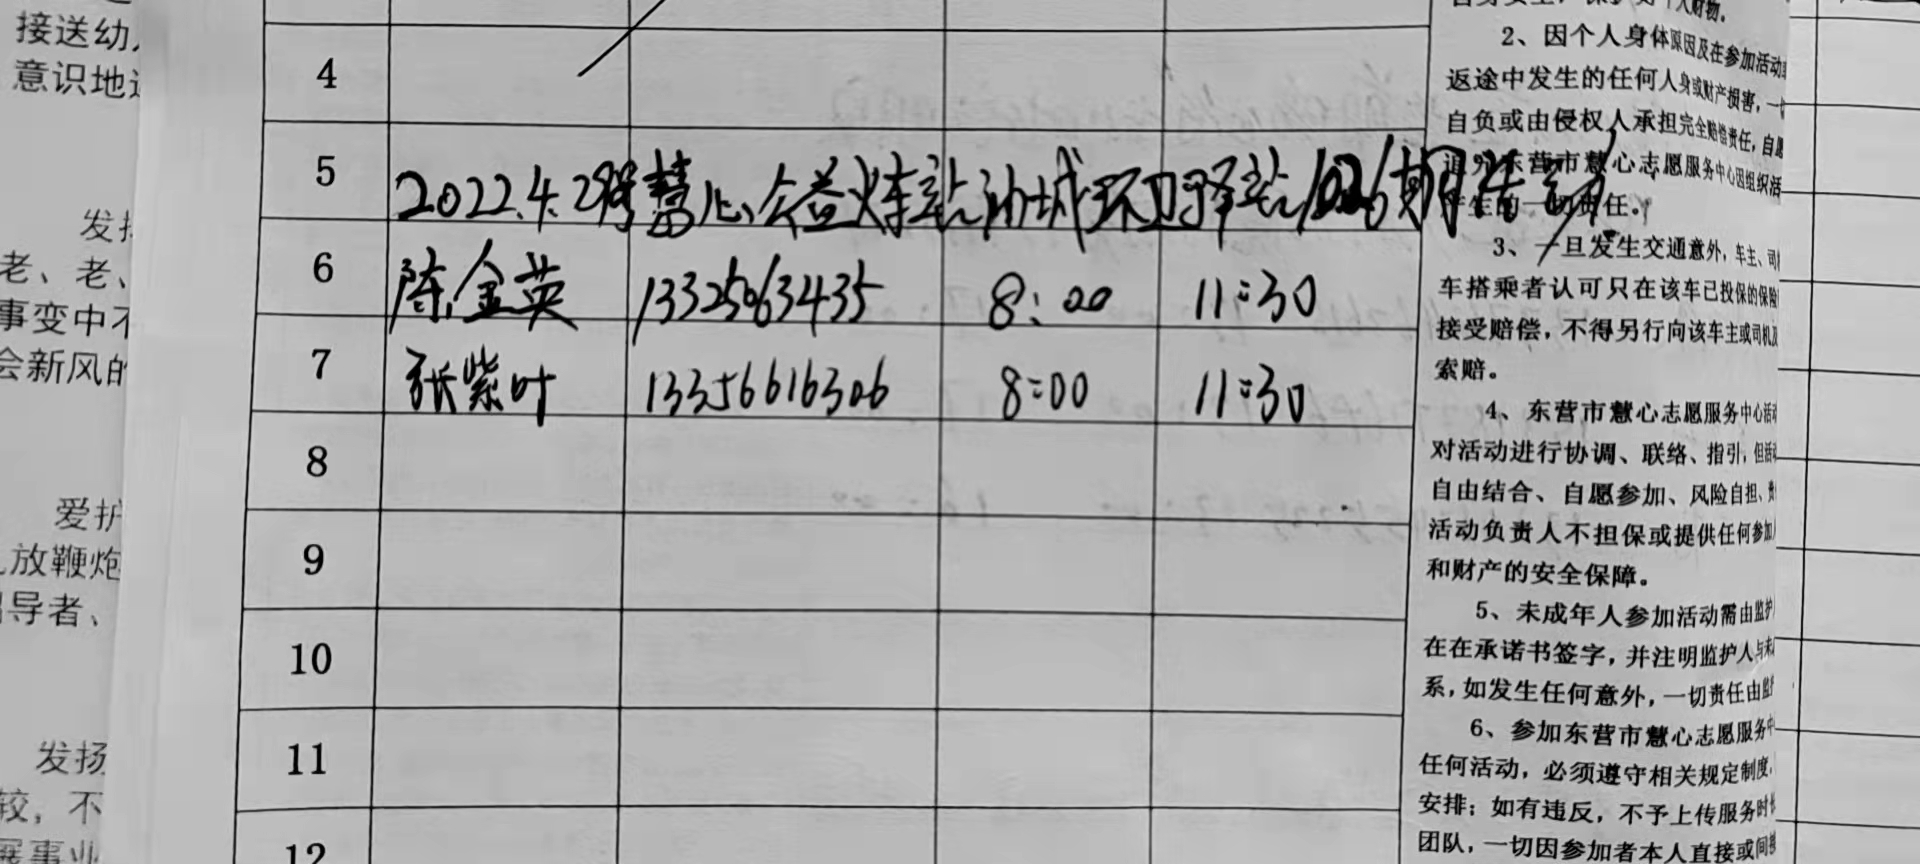 接送幼
意识地
发扬
老、老、
事变中不
会新风的
爱护
放鞭炮
导者、
发扬
较，不
展事业
4
5 2022.4.29号慧心公益火车站油城环卫驿站1026期活动
6 陈金英 13325063435 8:00 11:30
7 张紫叶 13356616306 8:00 11:30
8
9
10
11
12
2、因个人身体原因及在参加活动
返途中发生的任何人身或财产损害，一切
自负或由侵权人承担完全赔偿责任，自愿
追究东营市慧心志愿服务中心因组织活
产生的一切责任。
3、一旦发生交通意外，车主、司
车搭乘者认可只在该车已投保的保险
接受赔偿，不得另行向该车主或司机及
索赔。
4、东营市慧心志愿服务中心活动
对活动进行协调、联络、指引，但活动
自由结合、自愿参加、风险自担、责
活动负责人不担保或提供任何参加人
和财产的安全保障。
5、未成年人参加活动需由监护
在在承诺书签字，并注明监护人与未
系，如发生任何意外，一切责任由监护
6、参加东营市慧心志愿服务中
任何活动，必须遵守相关规定制度，
安排；如有违反，不予上传服务时长
团队，一切因参加者本人直接或间接